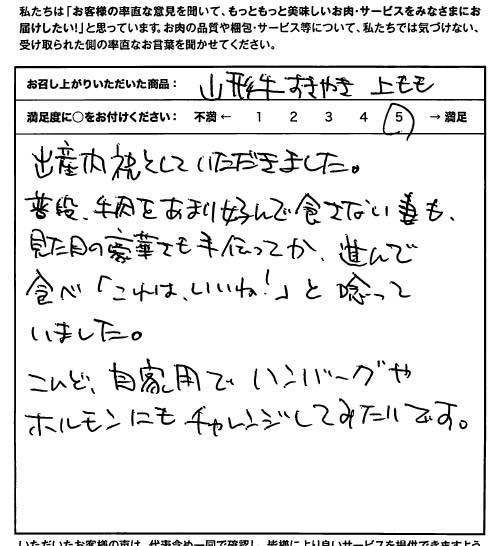 私たちは「お客様の率直な意見を聞いて、もっともっと美味しいお肉・サービスをみなさまにお
届けしたい!」と思っています。お肉の品質や梱包・サービス等について、私たちでは気づけない、
受け取られた側の率直なお言葉を聞かせてください。
お召し上がりいただいた商品: 山形牛すきやき 上もも
満足度に○をお付けください: 不満 ← 1 2 3 4 5 → 満足
出産内祝としていただきました。
普段、牛肉をあまり好んで食さない妻も、
見た目の豪華さも手伝ってか、進んで
食べ「これは、いいね!」と唸って
いました。
こんど、自家用でハンバーグや
ホルモンにもチャレンジしてみたいです。
いただいたお客様の声は、代表含め一同で確認し、皆様により良いサービスを提供できますよう